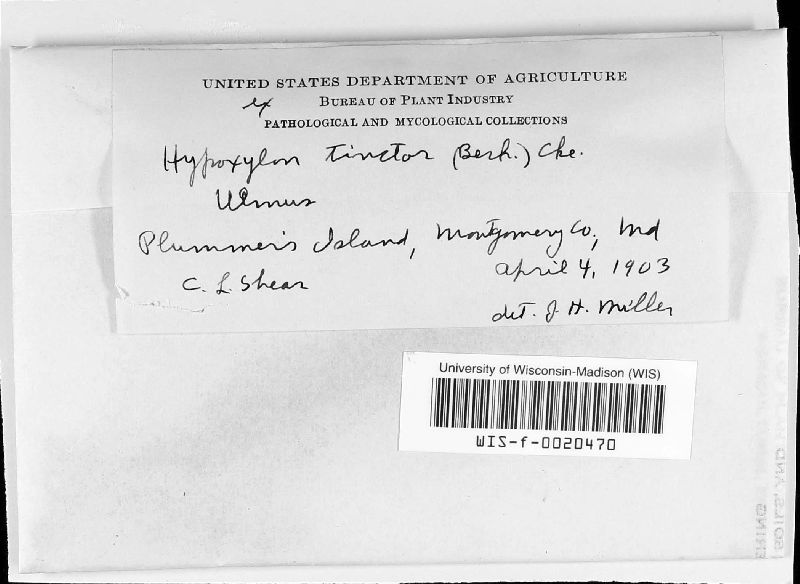 UNITED STATES DEPARTMENT OF AGRICULTURE
ex BUREAU OF PLANT INDUSTRY
PATHOLOGICAL AND MYCOLOGICAL COLLECTIONS
Hypoxylon tinctor (Berk.) Cke.
Ulmus
Plummer's Island, Montgomery Co., Md
C. L. Shear April 4, 1903
det. J. H. Miller
University of Wisconsin-Madison (WIS)
WIS-f-0020470